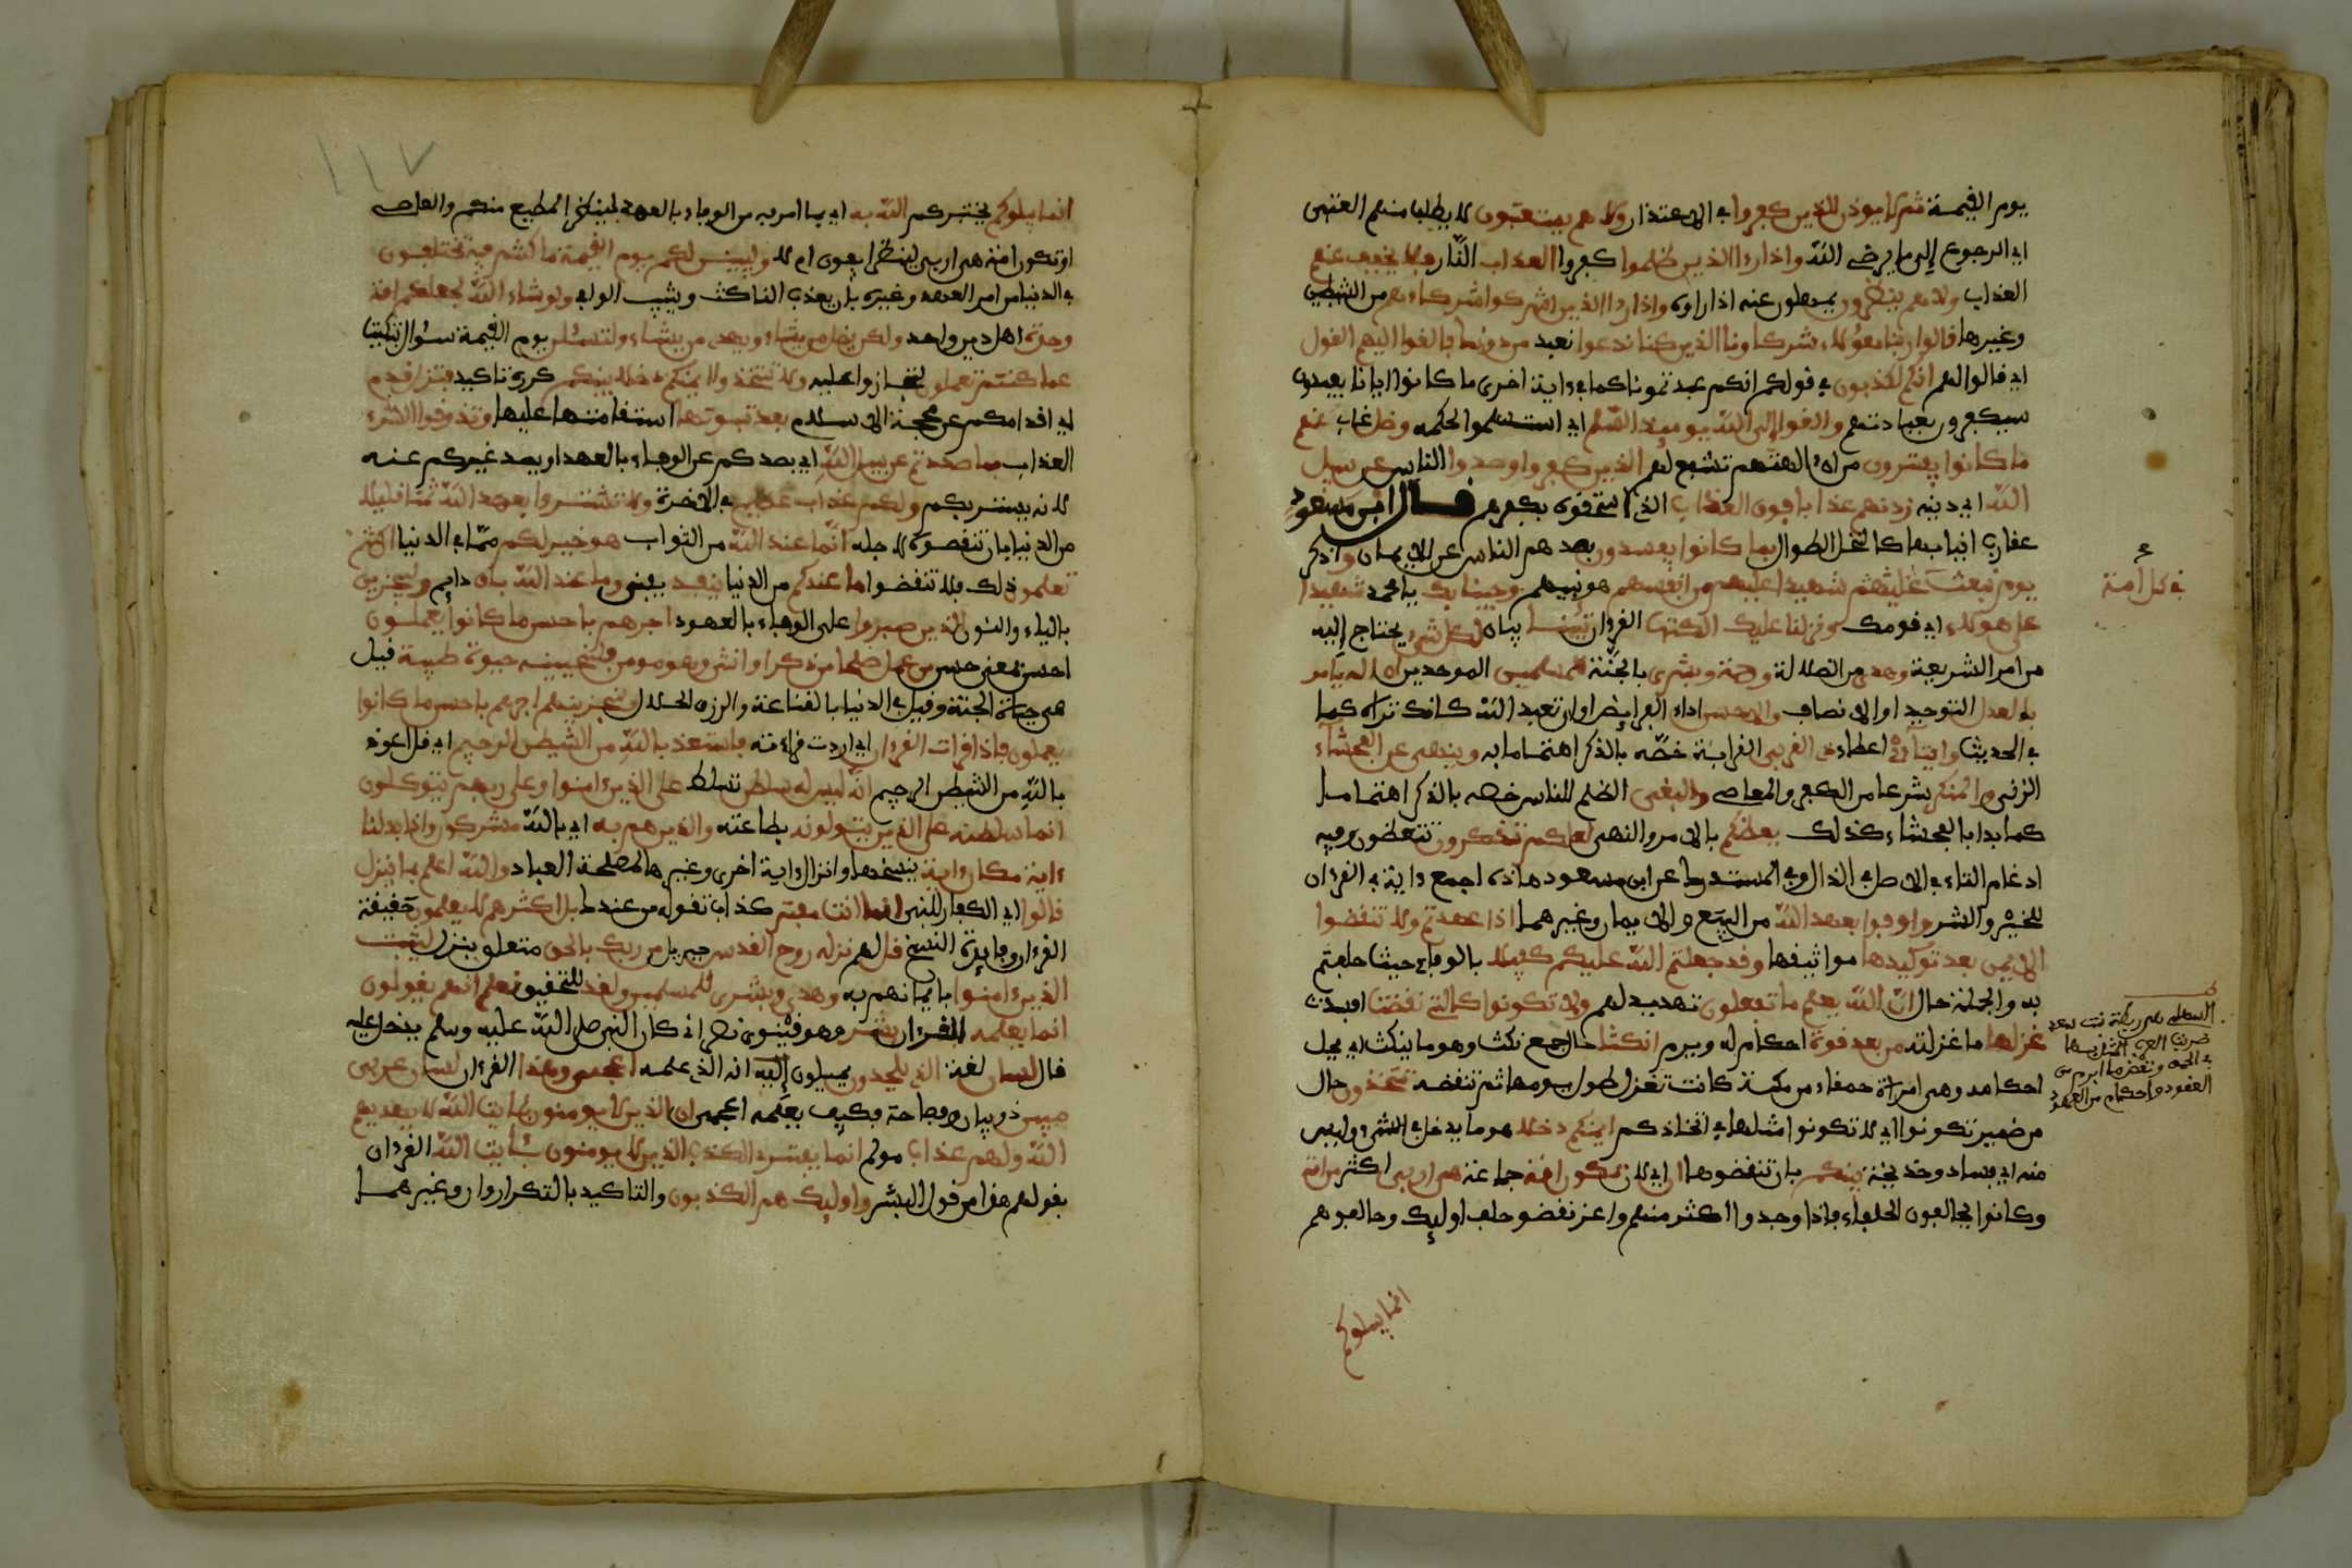 يوم القيمة ثم لا يوذن للذين كفروا في الاعتذار ولا هم يستعتبون لا يطلب منهم العتبى
اي الرجوع إلى ما يرضى الله واذا رءا الذين ظلموا كفروا العذاب النار فلا يخفف عنهم
العذاب ولا هم ينظرون يمهلون عنه اذا راوه واذا رءا الذين اشركوا شركاءهم من الشيطين
وغيرها قالوا ربنا هؤلاء شركاونا الذين كنا ندعوا نعبد من دونك فالقوا اليهم القول
اي قالوا لهم انكم لكذبون في قولكم انكم عبدتمونا كما في ءاية اخرى ما كانوا ايانا يعبدون
سيكفرون بعبادتهم والقوا إلى الله يوميذ السلم اي استسلموا لحكمه وضل غاب عنهم
ما كانوا يفترون من ان ءالهتهم تشفع لهم الذين كفروا وصدوا الناس عن سبيل
الله اي دينه زدنهم عذابا فوق العذاب الذي استحقوه بكفرهم قال ابن مسعود
عقارب انيابها كالنخل الطوال بما كانوا يفسدون بصدهم الناس عن الايمان واذكر
يوم نبعث في كل امة شهيدا عليهم من انفسهم هو نبيهم وجينا بك يا محمد شهيدا
على هولاء اي قومك ونزلنا عليك الكتب القرءان تبينا بيانا لكل شيء يحتاج إليه
من امر الشريعة وهدى من الضلالة ورحمة وبشرى بالجنة للمسلمين الموحدين ان الله يامر
بالعدل التوحيد او الانصاف والاحسن اداء الفرايض او ان تعبد الله كانك تراه كما
في الحديث وايتاء اعطاء ذي القربى القرابة خصه بالذكر اهتماما به وينهى عن الفحشاء
الزنى والمنكر شرعا من الكفر والمعاصي والبغي الظلم للناس خصه بالذكر اهتماما
كما بدا بالفحشاء كذلك يعظكم بالامر والنهي لعلكم تذكرون تتعظون وفيه
ادغام التاء في الاصل في الذال وفي المستدرك عن ابن مسعود هاذه اجمع ءاية في القرءان
للخير والشر واوفوا بعهد الله من البيع والايمان وغيرهما اذا عهدتم ولا تنقضوا
الايمن بعد توكيدها مواثيقها وقد جعلتم الله عليكم كفيلا بالوفاء حيث حلفتم
به والجملة حال ان الله يعلم ما تفعلون تهديد لهم ولا تكونوا كالتي نقضت افسدت
غزلها ما غزلته من بعد قوة احكام له وبرم انكثا حال جمع نكث وهو ما ينكث اي يحل
احكامه وهي امراة حمقاء من مكة كانت تغزل طول يومها ثم تنقضه تتخذون حال
من ضمير تكونوا اي لا تكونوا مثلها في اتخاذكم ايمنكم دخلا هو ما يدخل في الشيء وليس
منه اي فسادا وخديعة بينكم بان تنقضوها ان اي لان تكون امة جماعة هي اربى اكثر من امة
وكانوا يحالفون الحلفاء فاذا وجدوا اكثر منهم واعز نقضوا حلف اوليك وحالفوهم
انما يبلوكم
في كل امة
انما يبلوكم يختبركم الله به اي بما امر به من الوفاء بالعهد لينظر المطيع منكم والعاصي
او تكون امة هي اربى لينظر ايفون ام لا وليبينن لكم يوم القيمة ما كنتم فيه تختلفون
في الدنيا من امر العهد وغيره بان يعذب الناكث ويثيب الوافي ولو شاء الله لجعلكم امة
وحدة اهل دين واحد ولكن يضل من يشاء ويهدي من يشاء ولتسئلن يوم القيمة سؤال تبكيت
عما كنتم تعملون لتجازوا عليه ولا تتخذوا ايمنكم دخلا بينكم كرره تاكيدا فتزل قدم
اي اقدامكم عن محجة الاسلام بعد ثبوتها استقامتها عليها وتذوقوا السوء
العذاب بما صددتم عن سبيل الله اي بصدكم عن الوفاء بالعهد او بصد غيركم عنه
لانه يستن بكم ولكم عذاب عظيم في الاخرة ولا تشتروا بعهد الله ثمنا قليلا
من الدنيا بان تنقضوه لاجله انما عند الله من الثواب هو خير لكم مما في الدنيا ان كنتم
تعلمون ذلك فلا تنقضوا ما عندكم من الدنيا ينفد يفنى وما عند الله باق دايم ولنجزين
بالياء والنون الذين صبروا على الوفاء بالعهود اجرهم باحسن ما كانوا يعملون
احسن بمعنى حسن من عمل صلحا من ذكر او انثى وهو مومن فلنحيينه حيوة طيبة قيل
هي حياة الجنة وقيل في الدنيا بالقناعة والرزق الحلال ولنجزينهم اجرهم باحسن ما كانوا
يعملون فاذا قرات القرءان اي اردت قراءته فاستعذ بالله من الشيطن الرجيم اي قل اعوذ
بالله من الشيطن الرجيم انه ليس له سلطن تسلط على الذين ءامنوا وعلى ربهم يتوكلون
انما سلطنه على الذين يتولونه بطاعته والذين هم به اي بالله مشركون واذا بدلنا
ءاية مكان ءاية بنسخها وانزال ءاية اخرى وغيرها لمصلحة العباد والله اعلم بما ينزل
قالوا اي الكفار للنبي انما انت مفتر كذاب تقوله من عندك بل اكثرهم لا يعلمون حقيقة
القرءان وفايدة النسخ قل لهم نزله روح القدس جبريل من ربك بالحق متعلق بنزل ليثبت
الذين ءامنوا بايمانهم به وهدى وبشرى للمسلمين ولقد للتحقيق نعلم انهم يقولون
انما يعلمه القرءان بشر وهو قين نصراني كان النبي صلى الله عليه وسلم يدخل عليه
قال لسان لغة الذي يلحدون يميلون إليه انه الذي علمه اعجمي وهذا القرءان لسان عربي
مبين ذو بيان وفصاحة فكيف يعلمه اعجمي ان الذين لا يومنون بئايت الله لا يهديهم
الله ولهم عذاب مولم انما يفتري الكذب الذين لا يومنون بئايت الله القرءان
بقولهم هذا من قول البشر واوليك هم الكذبون والتاكيد بالتكرار وان وغيرهما